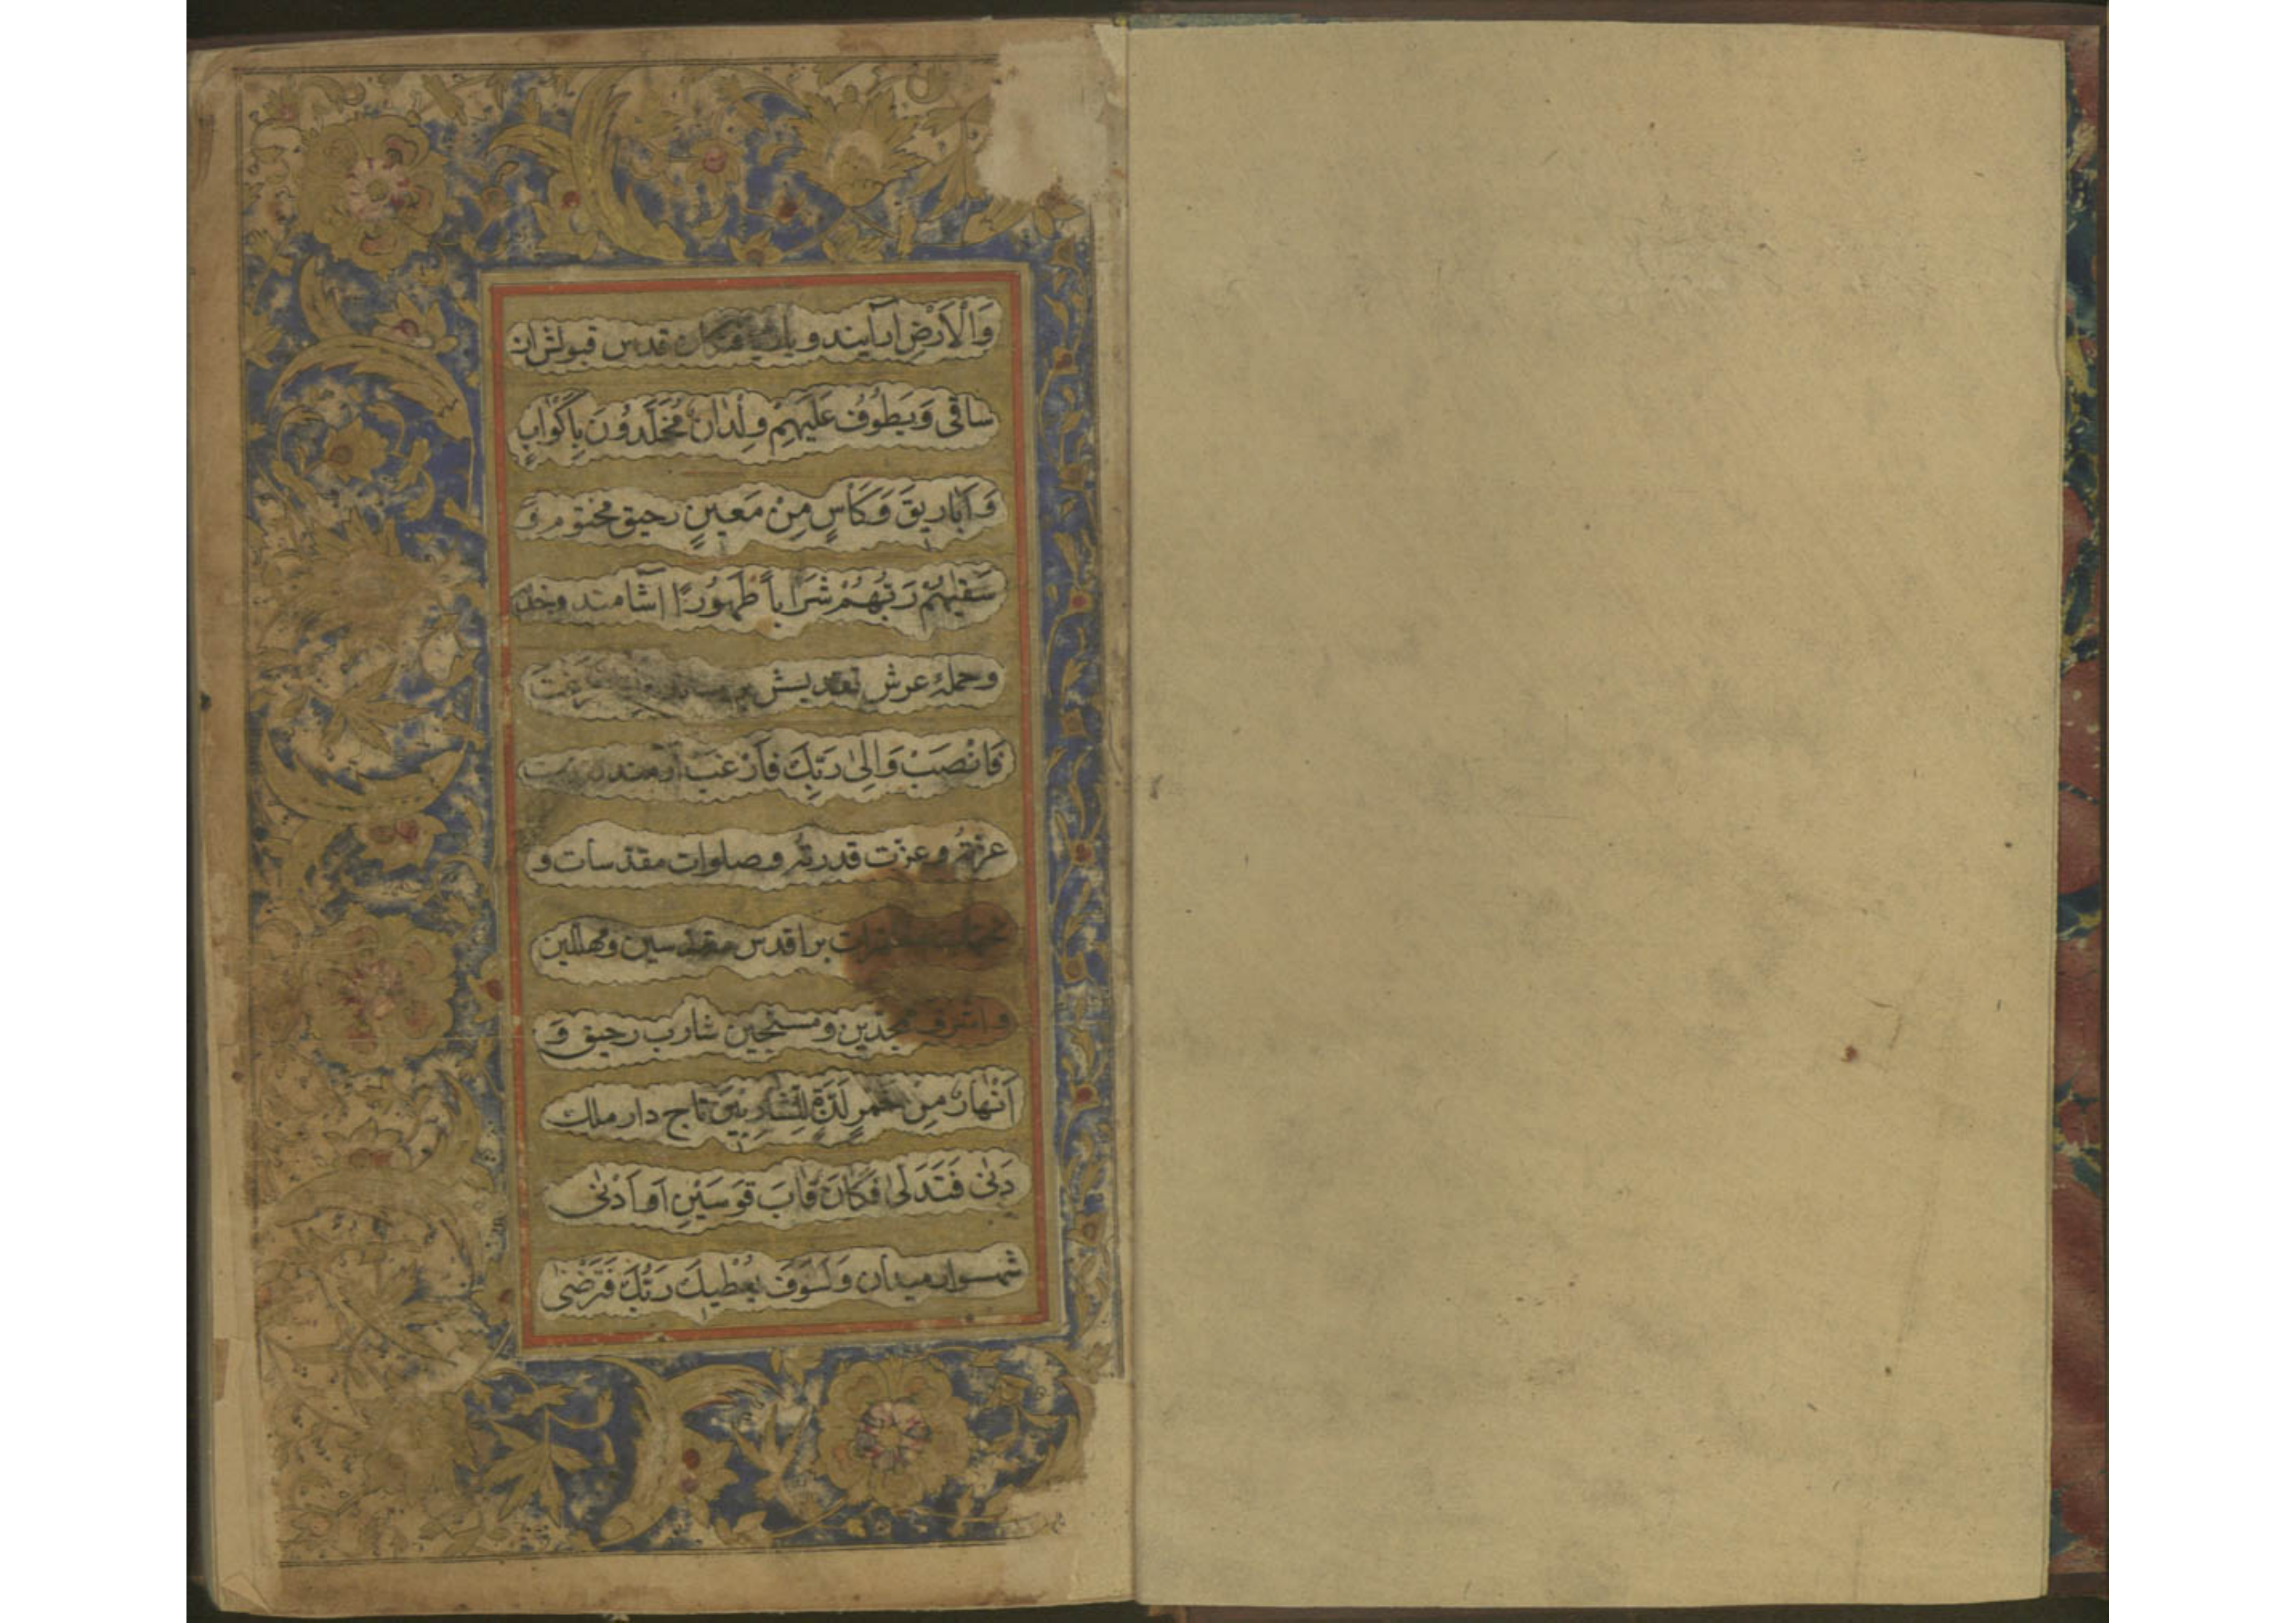 وَالْاَرْضِ آرایند و قدس قبولش از
ساقی وَيَطُوفُ عَلَيْهِمْ وِلْدَانٌ مُخَلَّدُونَ بِاَكْوَابٍ
وَ اَبَارِيقَ وَكَاْسٍ مِنْ مَعِينٍ رحیق مختوم وَ
سَقٰيهُمْ رَبُّهُمْ شَرَابًا طَهُورًا آشامند و
وحملهٔ عرش تقدیسش
فَانْصَبْ وَاِلٰى رَبِّكَ فَارْغَبْ
عزته و عزت قدرته و صلوات مقدسات و
بر اقدس مقدسین و مهللین
و اشرف ممجدین و مسبحین شارب رحیق وَ
اَنْهَارٌ مِنْ خَمْرٍ لَذَّةٍ لِلشَّارِبِينَ تاج دار ملك
دَنٰى فَتَدَلّٰى فَكَانَ قَابَ قَوْسَيْنِ اَوْ اَدْنٰى
شهسوار میدان وَلَسَوْفَ يُعْطِيكَ رَبُّكَ فَتَرْضٰى